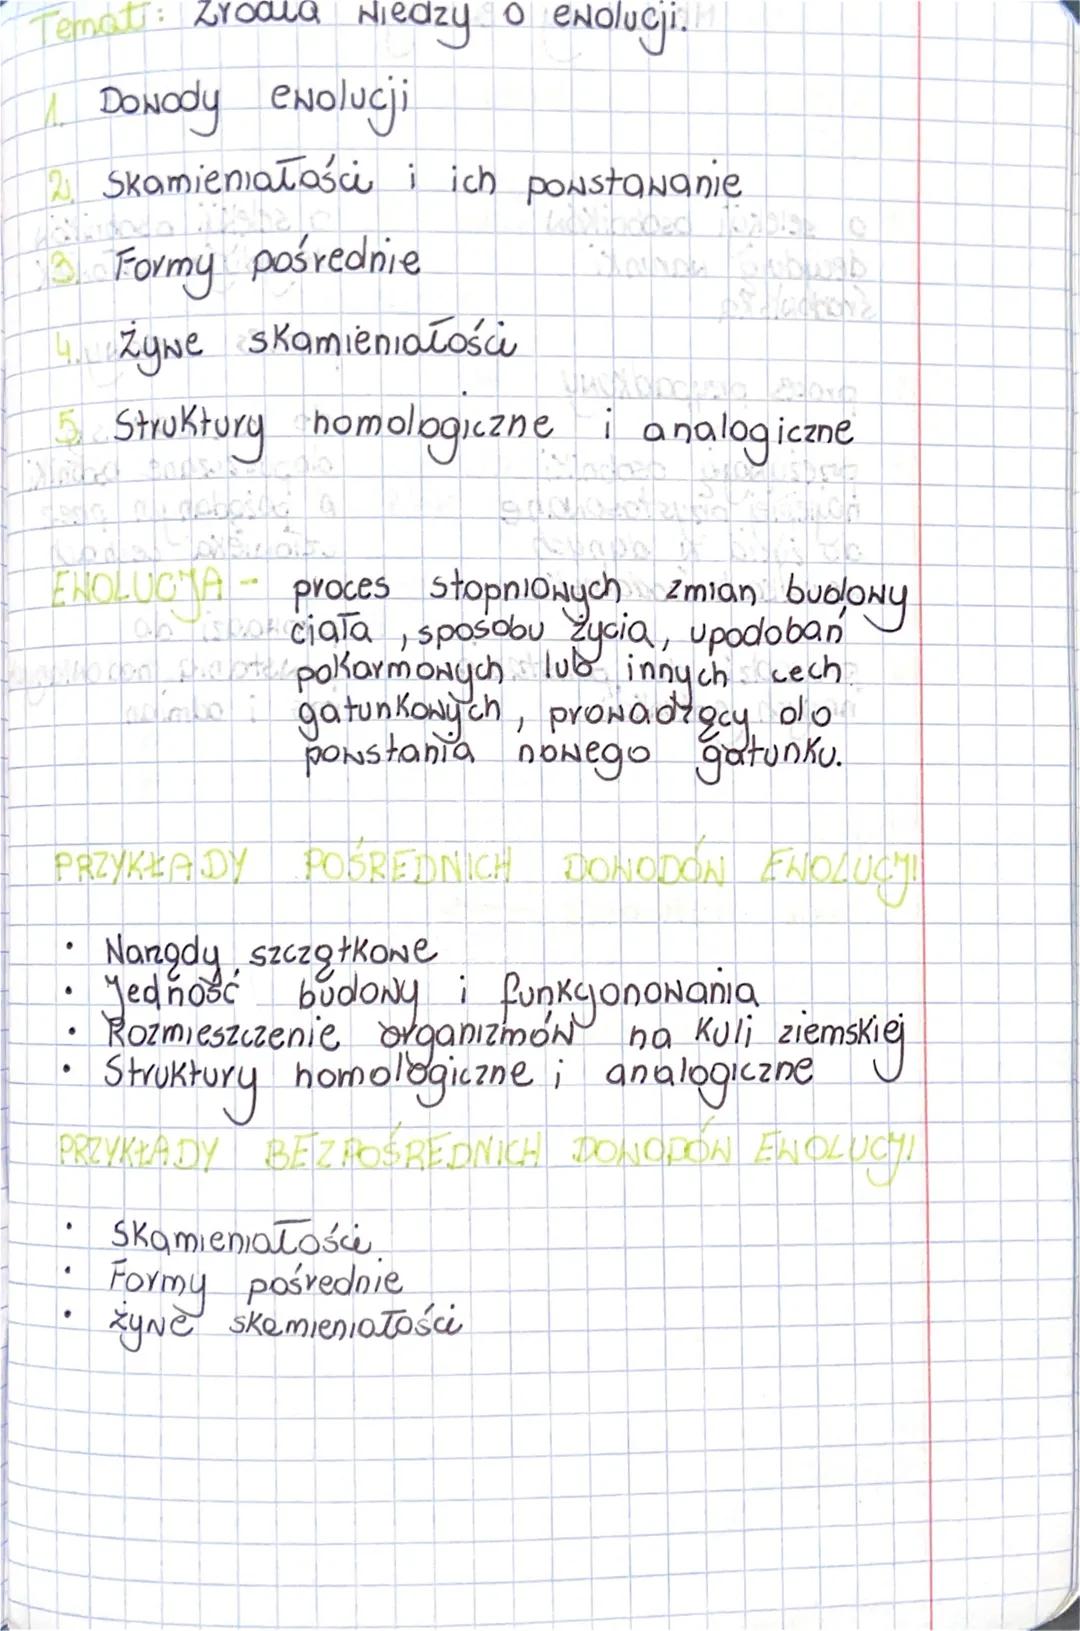 Temat: Źródła wiedzy o ewolucji.
1. Dowody ewolucji
2. Skamieniałości i ich powstawanie
3. Formy pośrednie
4. Żywe skamieniałości
5. Struktury homologiczne i analogiczne
EWOLUCJA - proces stopniowych zmian budowy
ciała, sposobu życia, upodobań
pokarmowych lub innych cech
gatunkowych, prowadzący do
powstania nowego gatunku.
PRZYKŁADY POŚREDNICH DOWODÓW EWOLUCJI
• Narządy szczątkowe
• Jedność budowy i funkcjonowania
• Rozmieszczenie organizmów na kuli ziemskiej
• Struktury homologiczne i analogiczne
PRZYKŁADY BEZPOŚREDNICH DOWODÓW EWOLUCJI
• Skamieniałości
• Formy pośrednie
• żywe skamieniałości